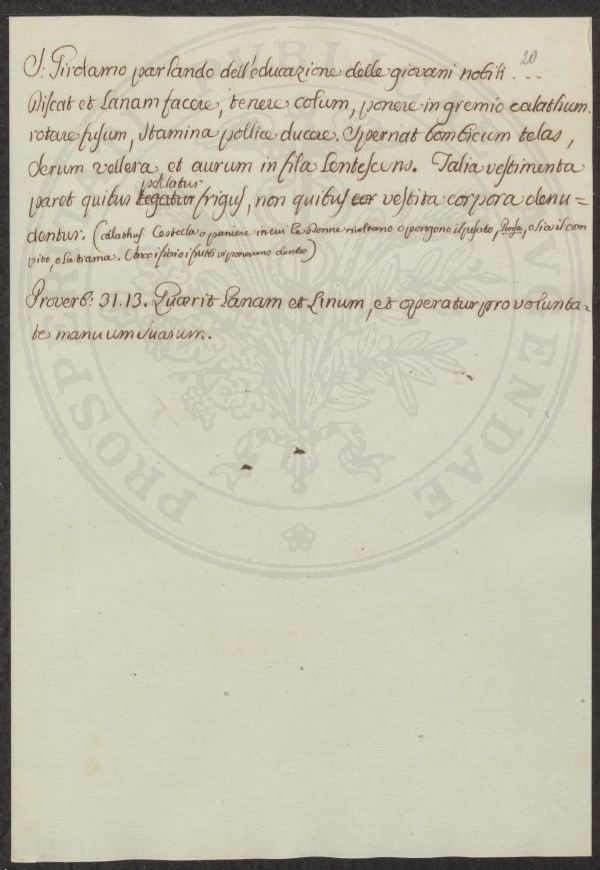 20
S: Girolamo parlando dell'educazione delle giovani nobili ....
Discat et Lanam facere, tenere colum, ponere in gremio calathum.
rotare fusum, stamina pollice ducere. Spernat bombicum telas,
Serum vellera et aurum in fila Lentescens. Talia vestimenta
pellatur
paret quibus tegatur frigus, non quibus cor vestita corpora denu=
dentur. (calathus. Cestella o paniere in cui le Donne mettano o pongono il fusato, o sia il com
pito, o la trama. i fiori i frutti vi ponevano dentro)
Proverb: 31.13. Quærit Lanam et Linum, et operatur pro volunta=
te manuum suarum.
PROSPERITATI PUBLICAE AUGENDAE